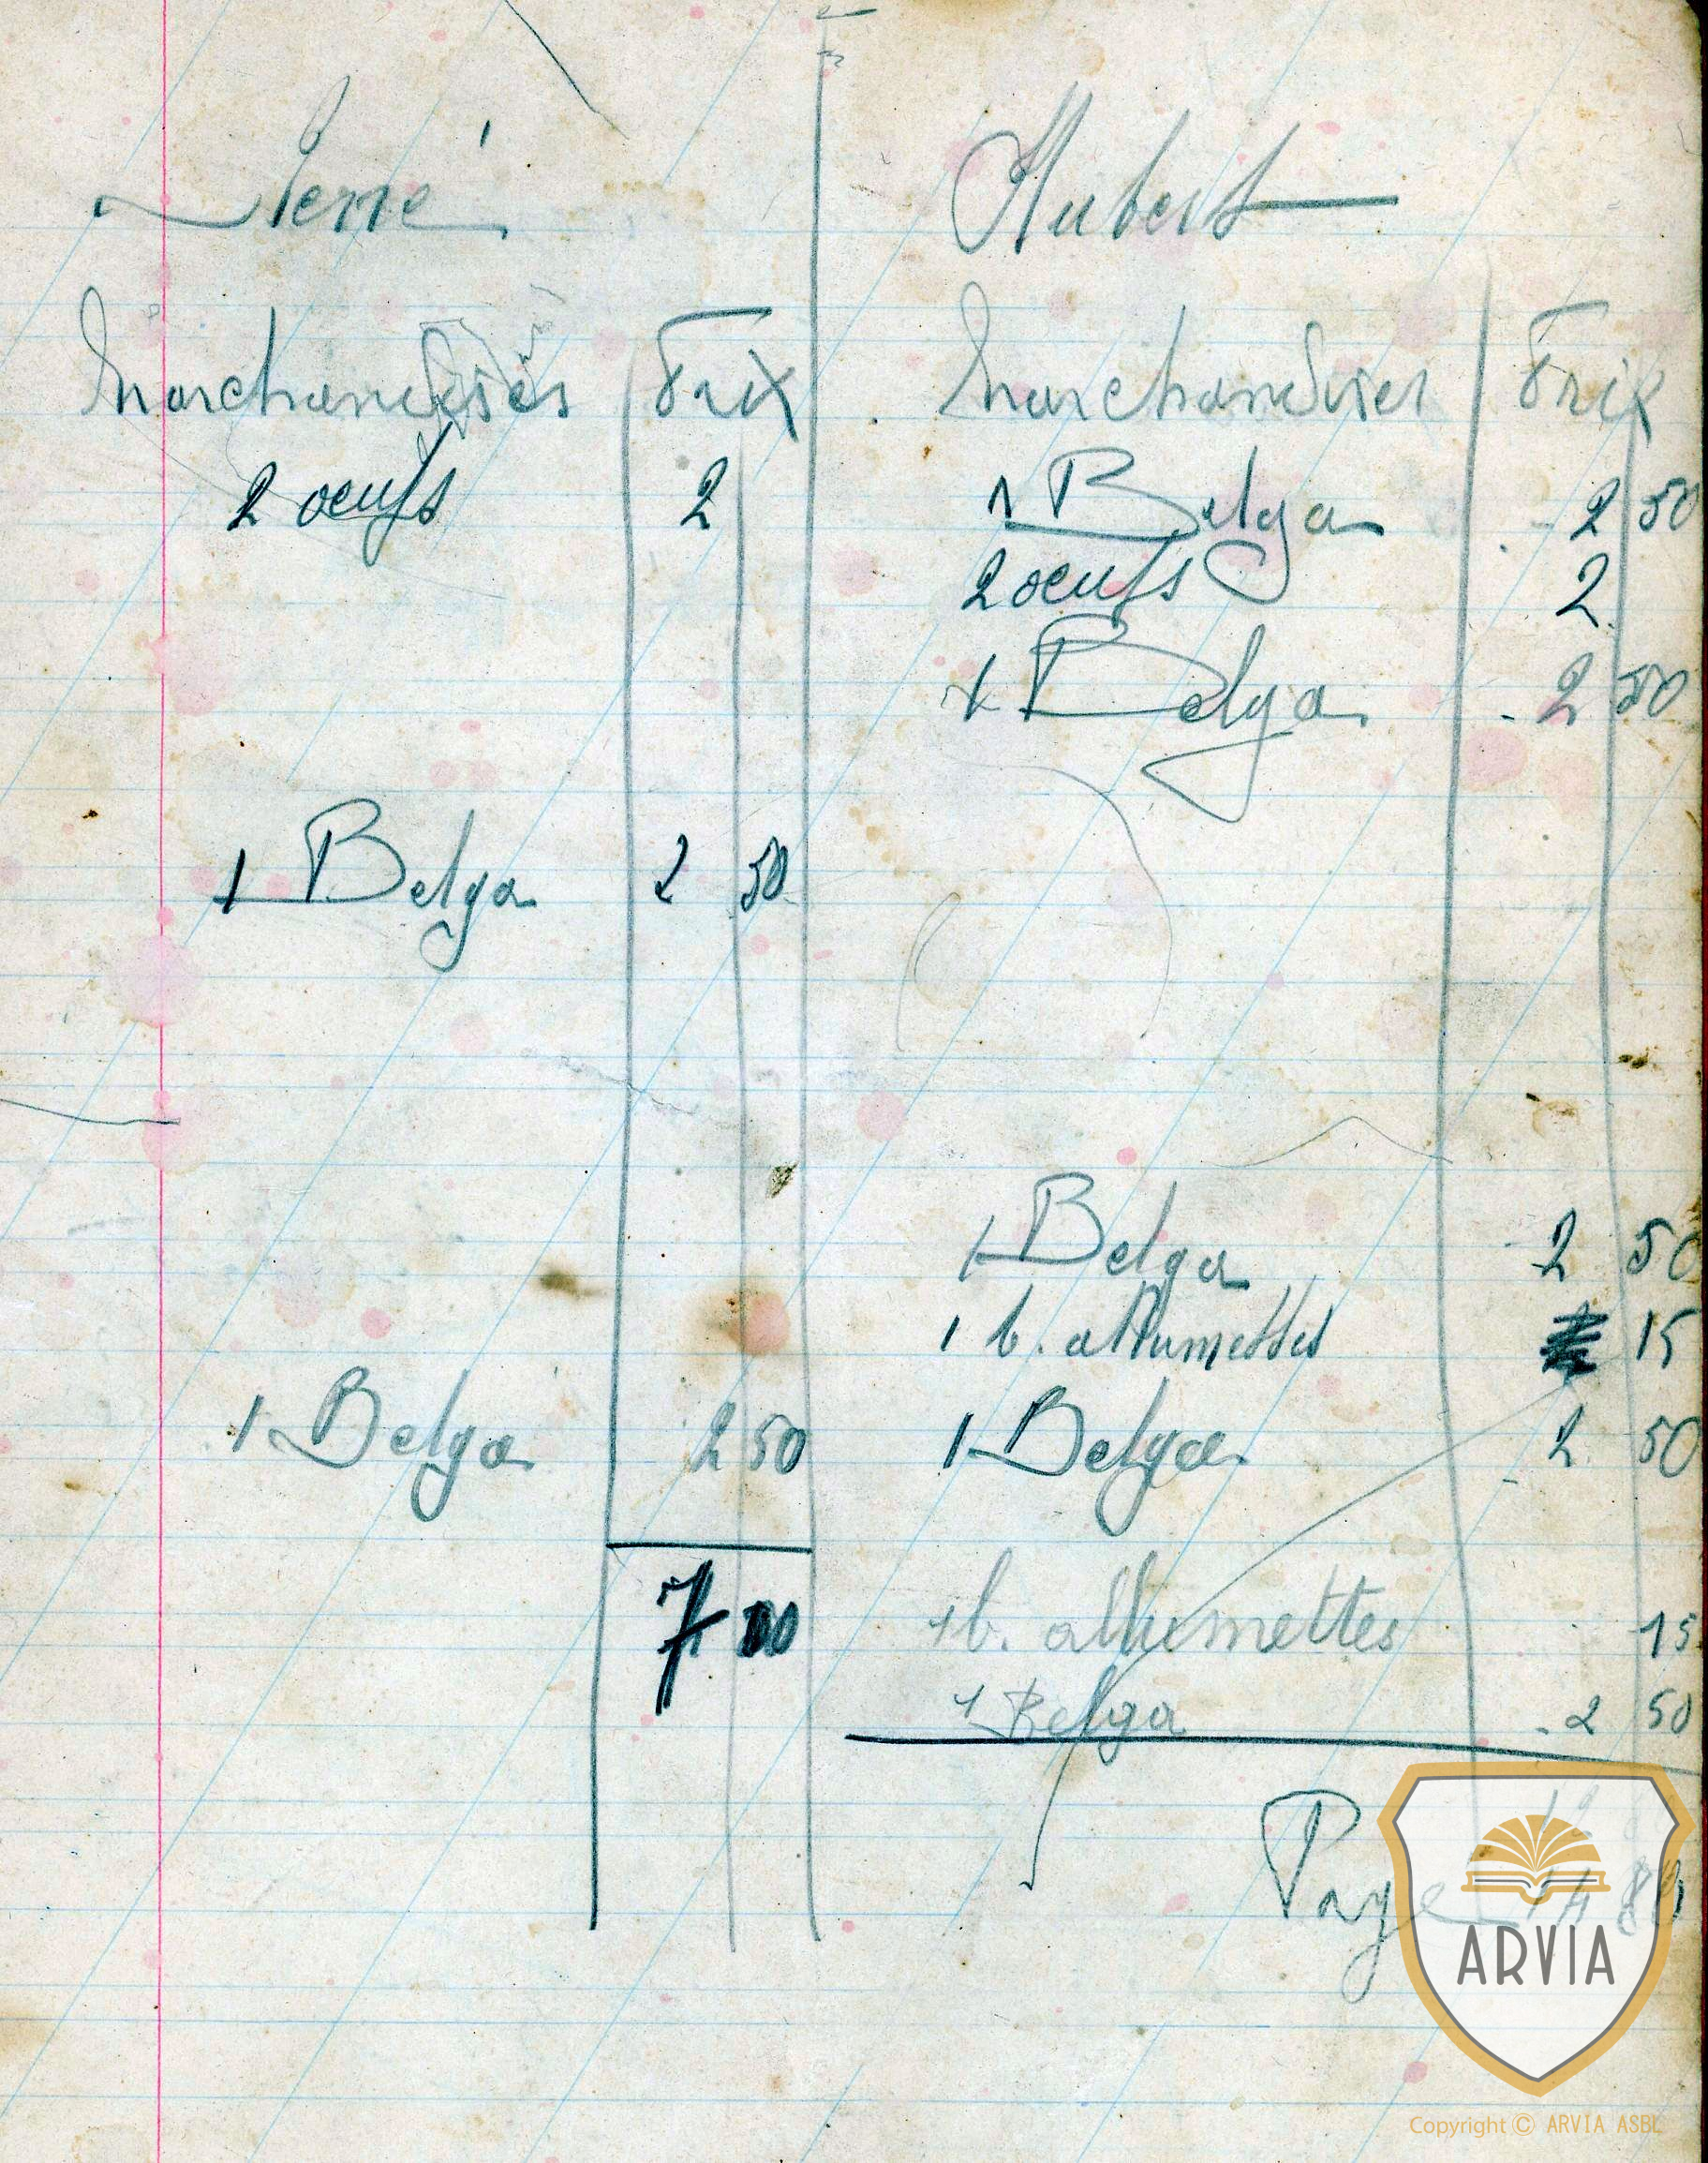 Hubert
Marchandises Prix
2 oeufs 2
1 Belga 2 50
1 Belga 2 50
7 00
Marchandises Prix
1 Belga 2 50
2 oeufs 2
1 Belga 2 50
1 Belga 2 50
1 b. allumettes 15
1 Belga 2 50
1 b. allumettes 15
1 Belga 2 50
Paye 14 80
ARVIA
Copyright © ARVIA ASBL